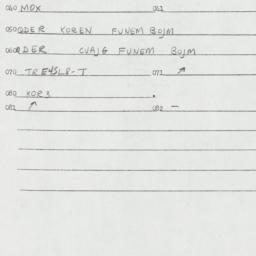 040 MOX 041
050 ODER KOREN FUNEM BOJM
060 ODER CVAJG FUNEM BOJM
070 TRE45L8-T 071 ↗
080 KOR3
081 ↗ 082 —